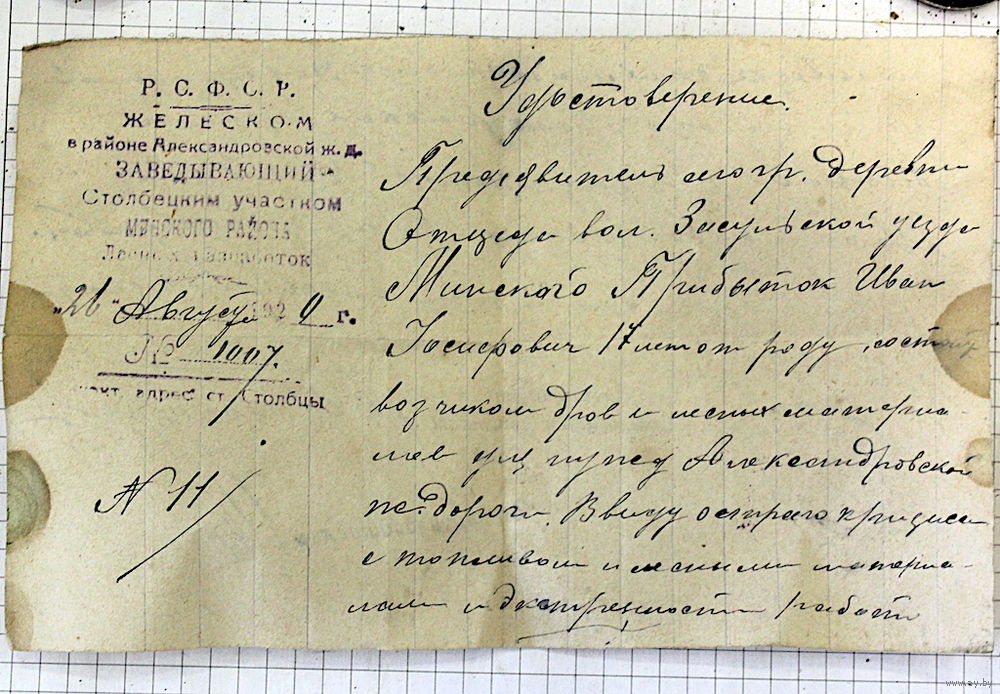 Р. С. Ф. С. Р.
ЖЕЛЕСКОМ
в районе Александровской ж. д.
ЗАВЕДЫВАЮЩИЙ
Столбецким участком
МИНСКОГО РАЙОНА
"26" Августа 192 г.
№ 1007.
адрес ст. Столбцы
N 11
Удостоверение.
Предъявитель сего гр. деревни
вол. Засульской уезда
Минского Прибыток Иван
Иосифович 17 лет от роду, состоит
возчиком дров и лесных материа-
лов для нужд Александровской
ж. дороги. Ввиду острого кризиса
с топливом и лесными материа-
лами и экстренности работ
www.ay.by